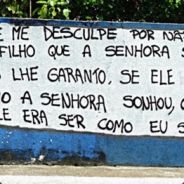 E ME DESCULPE POR NÃ
FILHO QUE A SENHORA S
S LHE GARANTO. SE ELE
O A SENHORA SONHOU,
ELE ERA SER COMO EU S